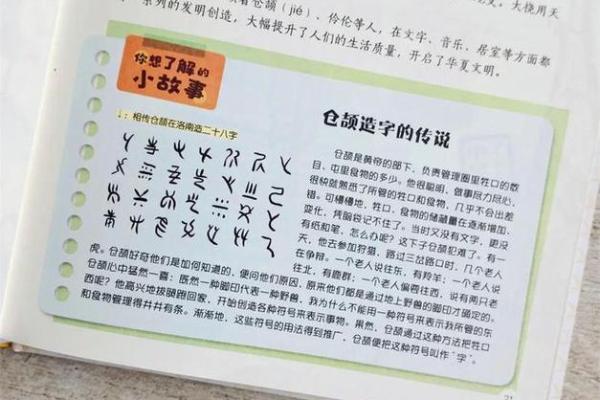 系列的发明创造，大幅提升了人们的生活质量，开启了华夏文明。
仓颉（jié）、伶伦等人，在文字、音乐、居室等方面都
大挠用天
你想了解的
小故事
：相传仓颉在洛南造二十八字
仓颉造字的传说
仓颉是黄帝的部下，负责管理圈里牲口的数
目、屯里食物的多少。他很聪明，做事尽力尽心，
很快就熟悉了所管的牲口和食物，几乎不会出差
错。可慢慢地，牲口、食物的储藏量在逐渐增加、
变化，凭脑袋记不住了。当时又没有文字，更没
有纸和笔，怎么办呢？这下子仓颉犯难了。有一
天，他去参加狩猎，路过三岔路口时，几个老人
在争辩。一个老人说往东，有羚羊；一个老人说
往北，有鹿群；一个老人偏要往西，说有两只老
虎。仓颉好奇他们是如何知道的，便问他们原因，原来他们都是通过地上野兽的脚印才确定的。
仓颉心中猛然一喜：既然一种脚印代表一种野兽，我为什么不能用一种符号来表示我所管的东
西呢？他高兴地拔腿跑回家，开始创造各种符号来表示事物。果然，仓颉通过这种方法把牲口
和食物管理得井井有条。渐渐地，这些符号的用法得到推广，仓颉便把这种符号叫作“字”。